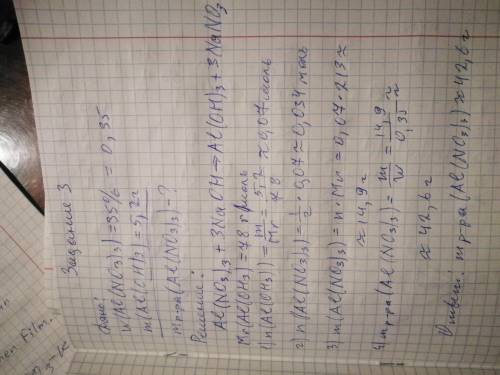 Задание 3
Дано:
W(Al(NO3)3) = 35% = 0,35
m(Al(OH)3) = 5,2г
mр-ра(Al(NO3)3) - ?
Решение:
Al(NO3)3 + 3NaOH → Al(OH)3 + 3NaNO3
Mr(Al(OH)3 = 78 г/моль
1) n(Al(OH)3) = m/Mr = 5,2/78 ≈ 0,07 моль
2) n(Al(NO3)3) = 1/2 · 0,07 ≈ 0,034 моль
3) m(Al(NO3)3) = n · Mr = 0,07 · 213 ≈
≈ 14,9г
4) mр-ра(Al(NO3)3) = m/W = 14,9/0,35 ≈
≈ 42,6г
Ответ: mр-ра(Al(NO3)3) ≈ 42,6г
en Film.